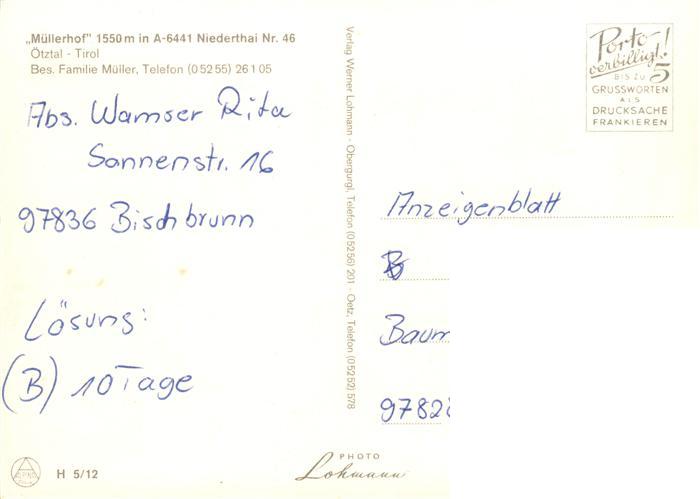 „Müllerhof" 1550 m in A-6441 Niederthai Nr. 46
Ötztal - Tirol
Bes. Familie Müller, Telefon (0 52 55) 261 05
Abs. Wamser Rita
Sonnenstr. 16
97836 Bischbrunn
Lösung:
(B) 10 Tage
H 5/12
Verlag Werner Lohmann - Obergurgl, Telefon (05256) 201 - Oetz, Telefon (05252) 578
PHOTO
Lohmann
Porto-
verbilligt!
BIS ZU 5
GRUSSWORTEN
ALS
DRUCKSACHE
FRANKIEREN
Anzeigenblatt
B
Baum
9782